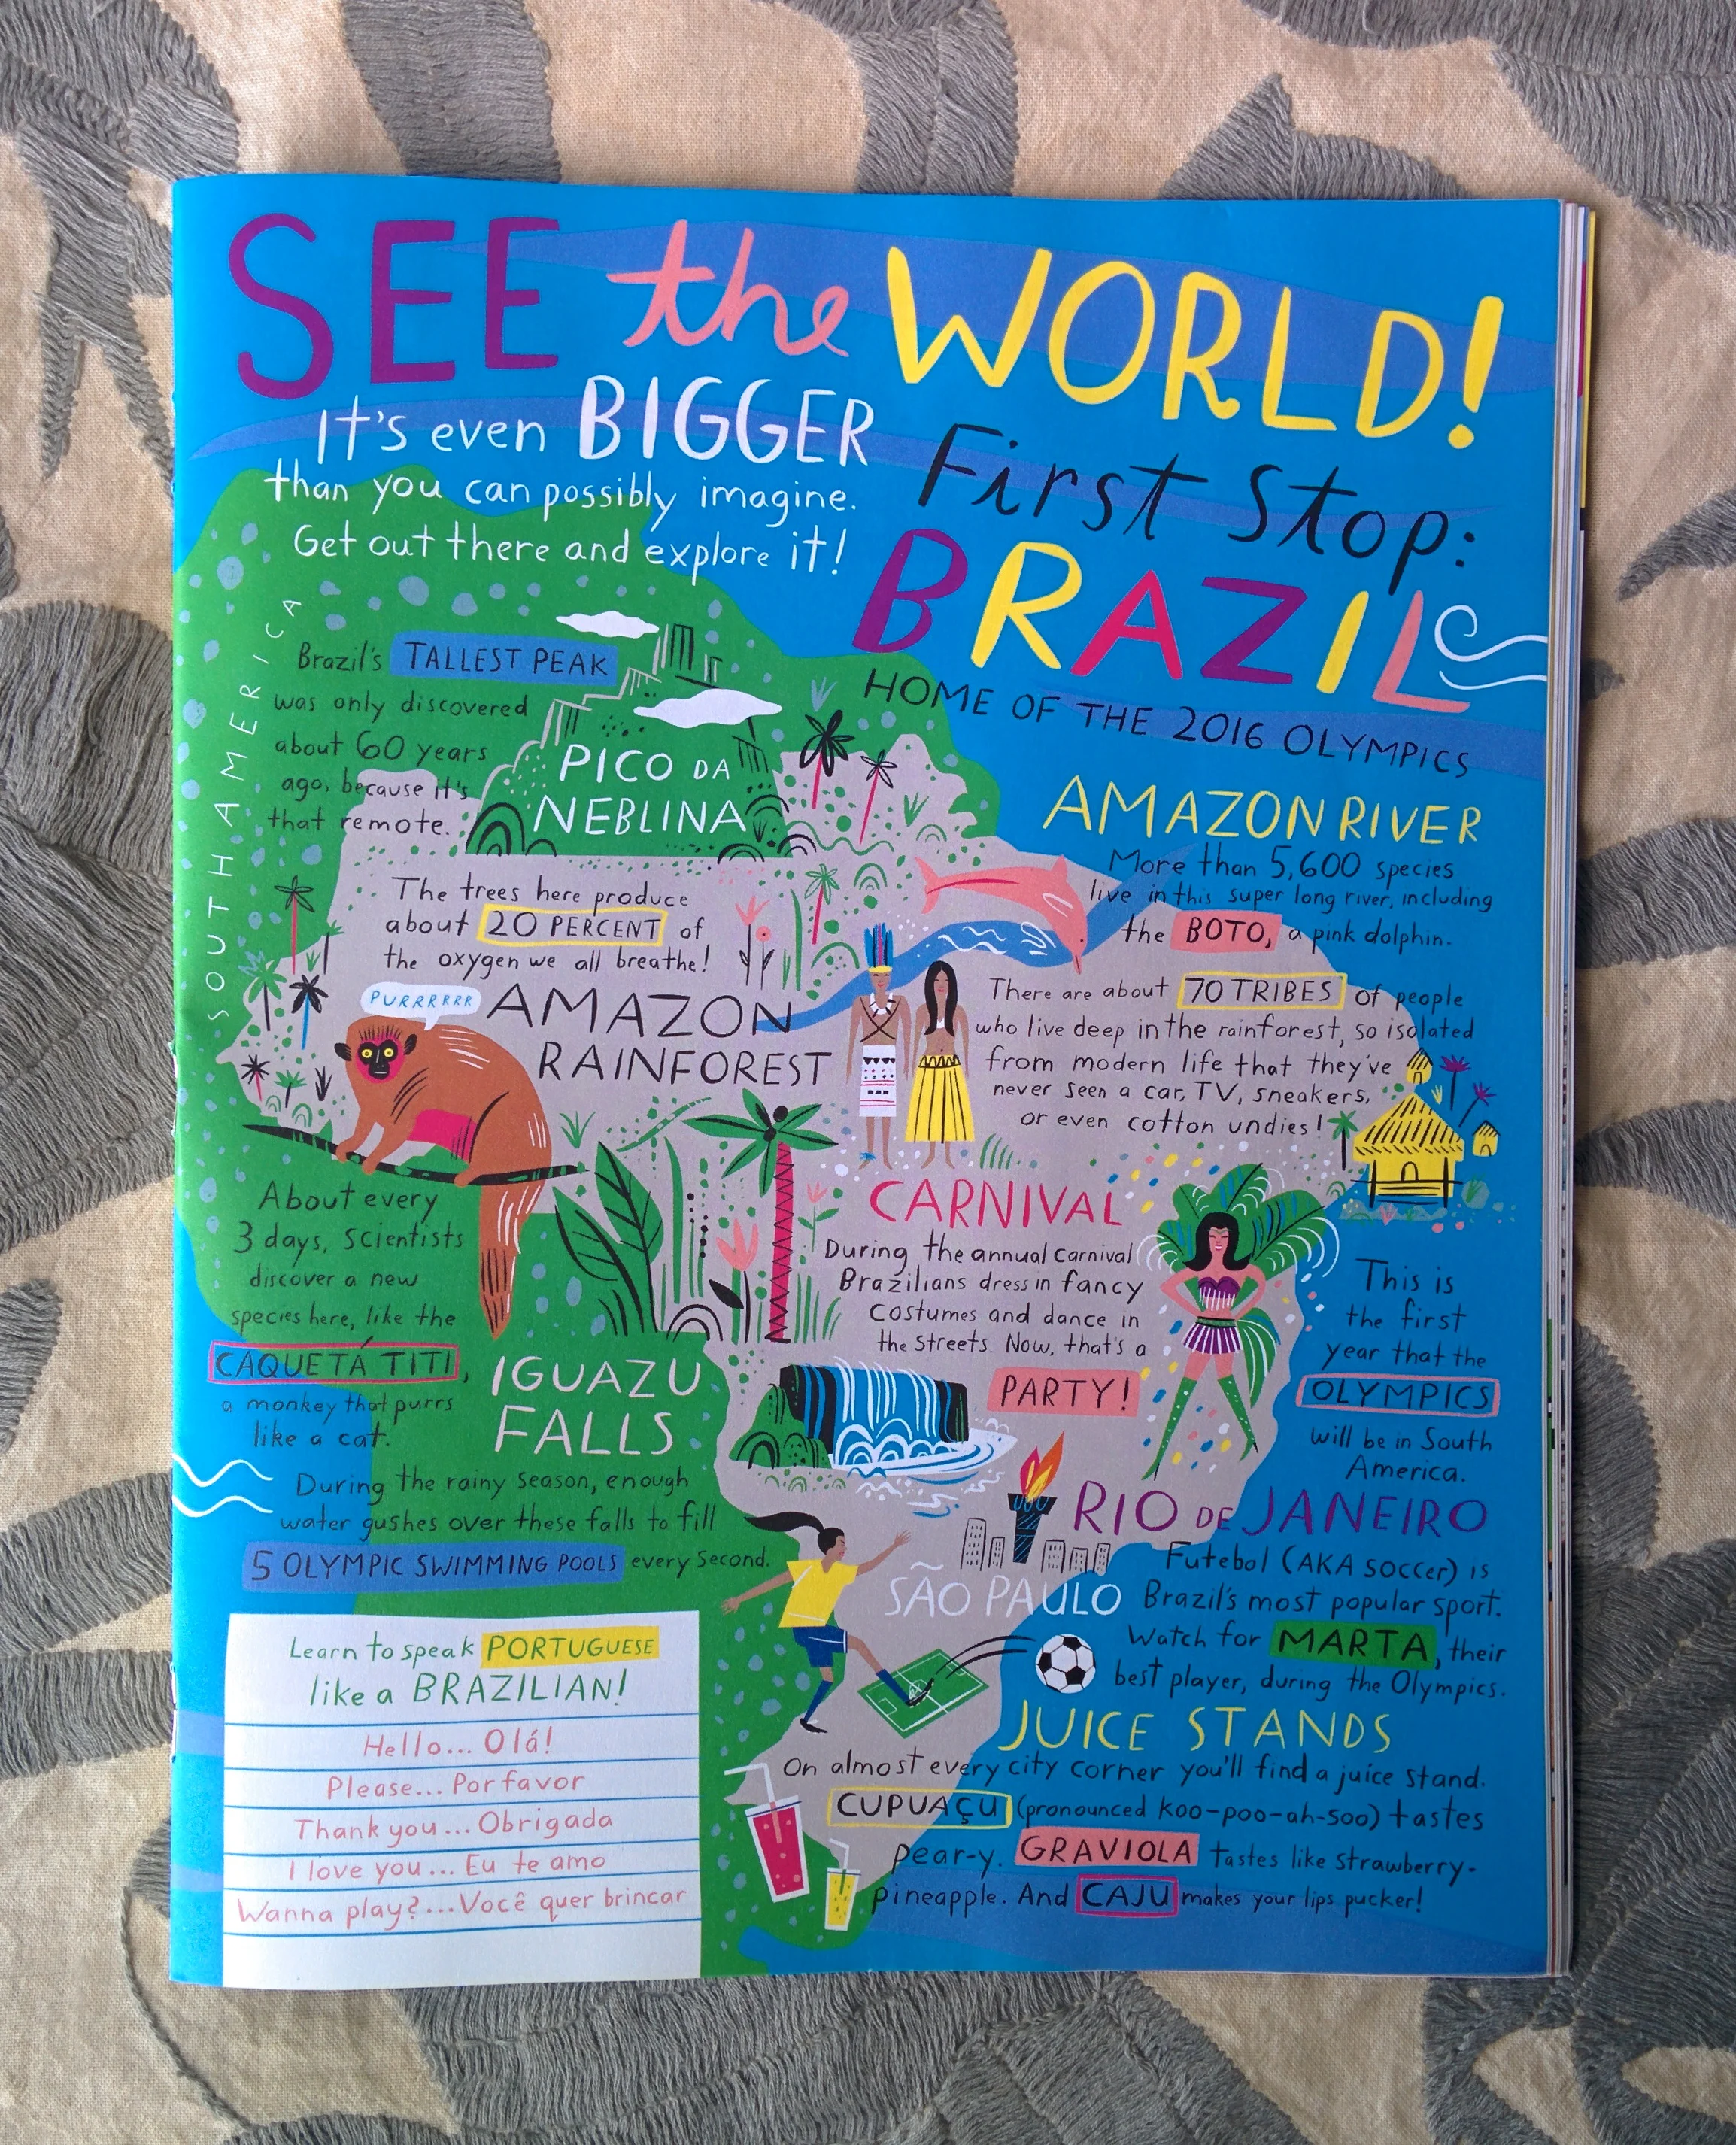 SEE the WORLD!
It's even BIGGER
than you can possibly imagine.
Get out there and explore it!
First Stop:
BRAZIL
HOME OF THE 2016 OLYMPICS
SOUTH AMERICA
Brazil's TALLEST PEAK
was only discovered
about 60 years
ago, because it's
that remote.
PICO DA
NEBLINA
AMAZON RIVER
More than 5,600 species
live in this super long river, including
the BOTO, a pink dolphin.
The trees here produce
about 20 PERCENT of
the oxygen we all breathe!
PURRRRRR
AMAZON
RAINFOREST
There are about 70 TRIBES of people
who live deep in the rainforest, so isolated
from modern life that they've
never seen a car, TV, sneakers,
or even cotton undies!
About every
3 days, scientists
discover a new
species here, like the
CAQUETÁ TITI,
a monkey that purrs
like a cat.
CARNIVAL
During the annual carnival
Brazilians dress in fancy
costumes and dance in
the streets. Now, that's a
PARTY!
This is
the first
year that the
OLYMPICS
will be in South
America.
RIO DE JANEIRO
IGUAZU
FALLS
During the rainy season, enough
water gushes over these falls to fill
5 OLYMPIC SWIMMING POOLS every second.
SÃO PAULO
Futebol (AKA soccer) is
Brazil's most popular sport.
Watch for MARTA, their
best player, during the Olympics.
JUICE STANDS
On almost every city corner you'll find a juice stand.
CUPUAÇU (pronounced koo-poo-ah-soo) tastes
pear-y. GRAVIOLA tastes like strawberry-
pineapple. And CAJU makes your lips pucker!
Learn to speak PORTUGUESE
like a BRAZILIAN!
Hello... Olá!
Please... Por favor
Thank you... Obrigada
I love you... Eu te amo
Wanna play?...Você quer brincar